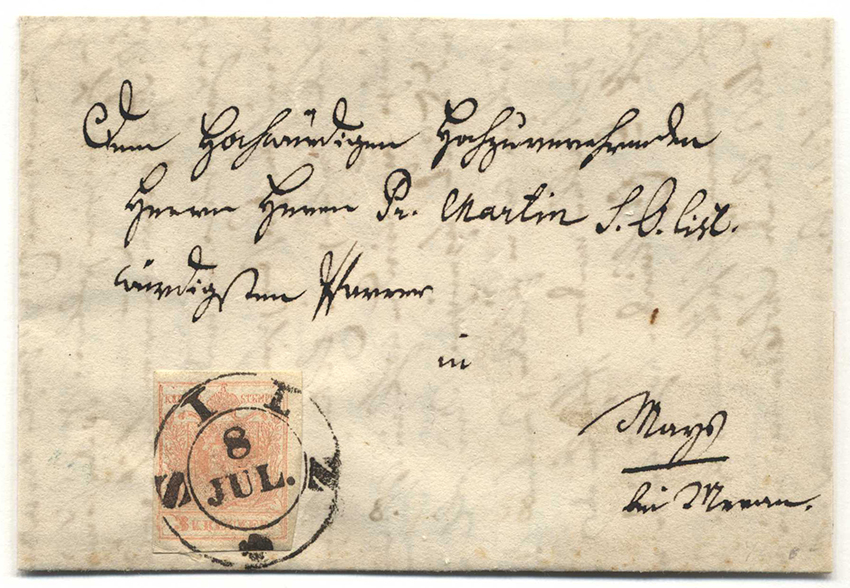 Dem Hochwürdigen Hochzuverehrenden
Herrn Herrn Pr. Martin S. O. Cist.
würdigsten Pfarrer
in
Mays
bei Meran.
STEMPEL
SILZ
8
JUL.
3 KREUZER